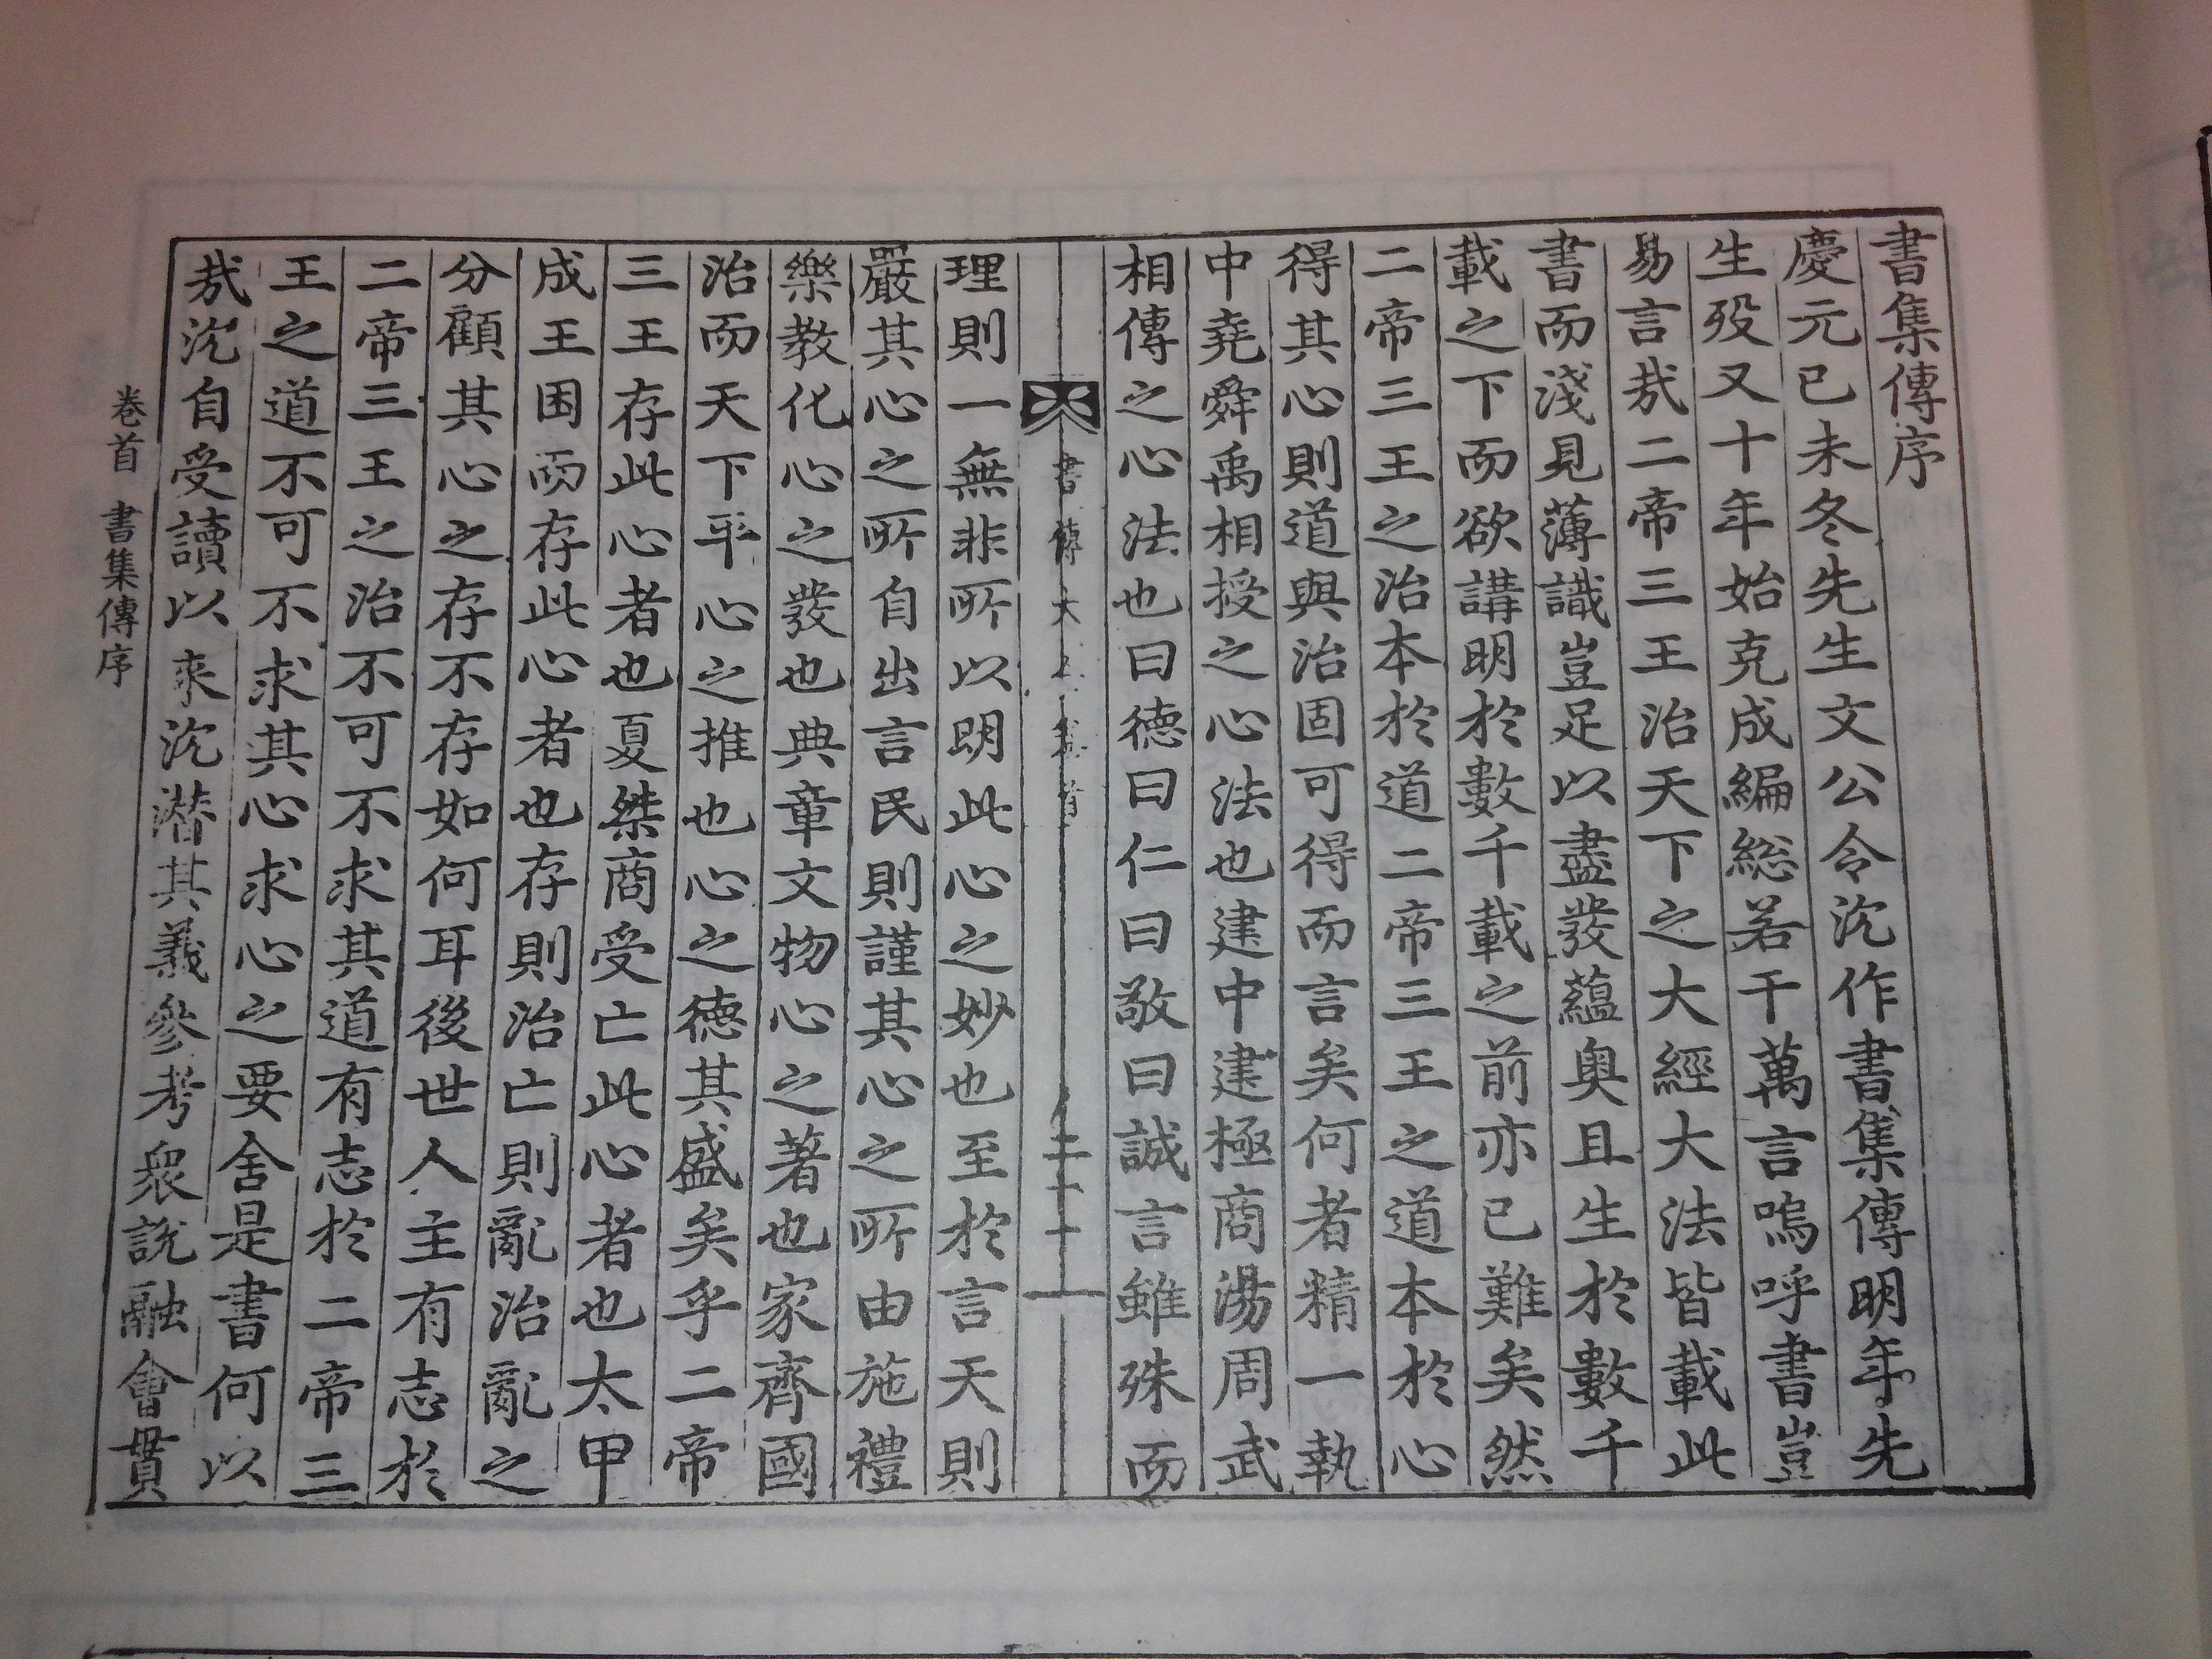 書集傳序
慶元已未冬先生文公令沈作書集傳明年先
生殁又十年始克成編總若干萬言嗚呼書豈
易言㢤二帝三王治天下之大經大法皆載此
書而淺見薄識豈足以盡發蘊奧且生於數千
載之下而欲講明於數千載之前亦已難矣然
二帝三王之治本於道二帝三王之道本於心
得其心則道與治固可得而言矣何者精一執
中堯舜禹相授之心法也建中建極商湯周武
相傳之心法也曰德曰仁曰敬曰誠言雖殊而
書傳大全 卷首
二十一
理則一無非所以明此心之妙也至於言天則
嚴其心之所自出言民則謹其心之所由施禮
樂教化心之發也典章文物心之著也家齊國
治而天下平心之推也心之德其盛矣乎二帝
三王存此心者也夏桀商受亡此心者也太甲
成王困而存此心者也存則治亡則亂治亂之
分顧其心之存不存如何耳後世人主有志於
二帝三王之治不可不求其道有志於二帝三
王之道不可不求其心求心之要舍是書何以
㢤沈自受讀以來沈潛其義參考衆說融會貫
卷首 書集傳序